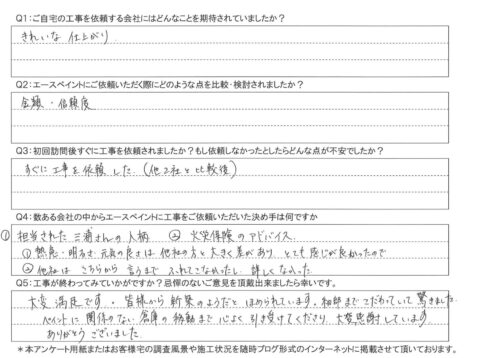 Q1：ご自宅の工事を依頼する会社にはどんなことを期待されていましたか？
きれいな 仕上がり
Q2：エースペイントにご依頼いただく際にどのような点を比較・検討されましたか？
金額・信頼度
Q3：初回訪問後すぐに工事を依頼されましたか？もし依頼しなかったとしたらどんな点が不安でしたか？
すぐに工事を依頼した（他2社と比較後）
Q4：数ある会社の中からエースペイントに工事をご依頼いただいた決め手は何ですか
① 担当された三浦さんの人柄 ② 火災保険のアドバイス
① 熱意・明るさ・元気の良さは他社の方と大きく差があり、とても感じが良かったので
② 他社は こちらから 言うまで ふれてこなかったし、詳しくなかった
Q5：工事が終わってみていかがですか？忌憚のないご意見を頂戴出来ましたら幸いです。
大変満足です。皆様から新築のようだとほめられています。細部までこだわっていて驚きました。
ペイントに関係のない倉庫の移動まで心よく引き受けてくださり、大変感謝しています
ありがとうございました。
＊本アンケート用紙またはお客様宅の調査風景や施工状況を随時ブログ形式のインターネットに掲載させて頂いております。